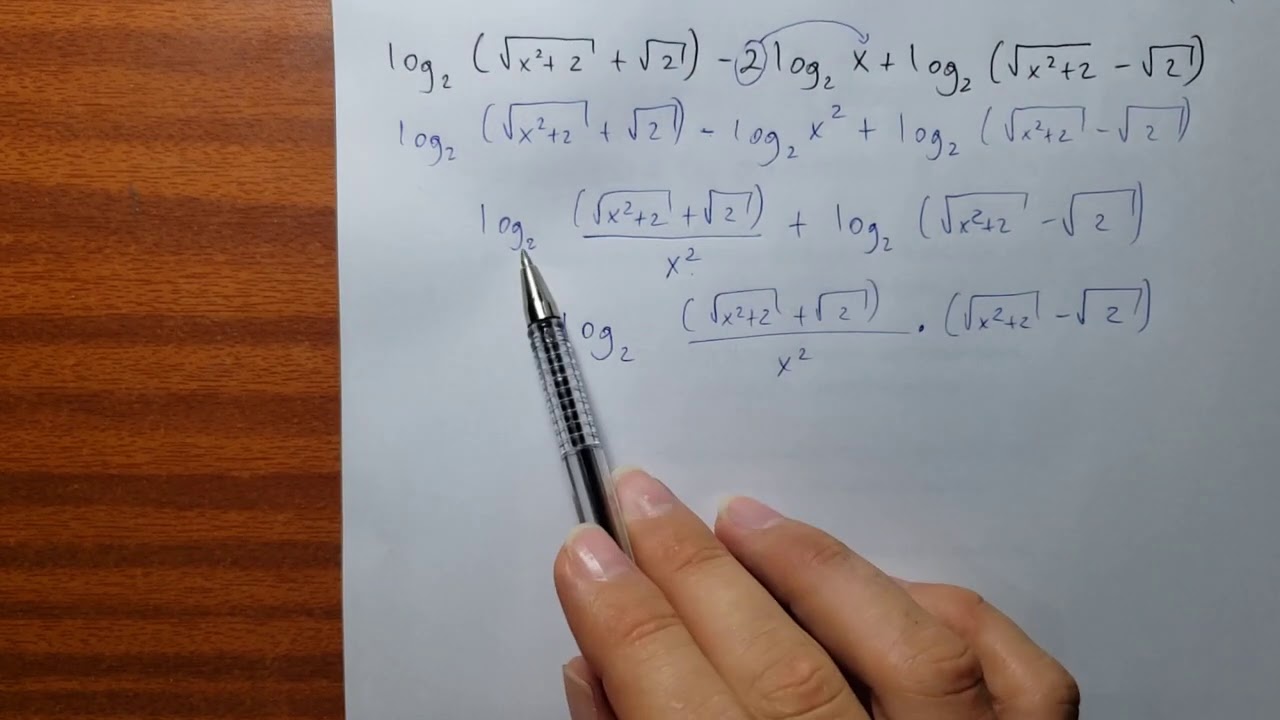 log₂ (√(x²+2) + √2) - 2 log₂ x + log₂ (√(x²+2) - √2)
log₂ (√(x²+2) + √2) - log₂ x² + log₂ (√(x²+2) - √2)
log₂ (√(x²+2) + √2)/x² + log₂ (√(x²+2) - √2)
log₂ (√(x²+2) + √2)/x² · (√(x²+2) - √2)